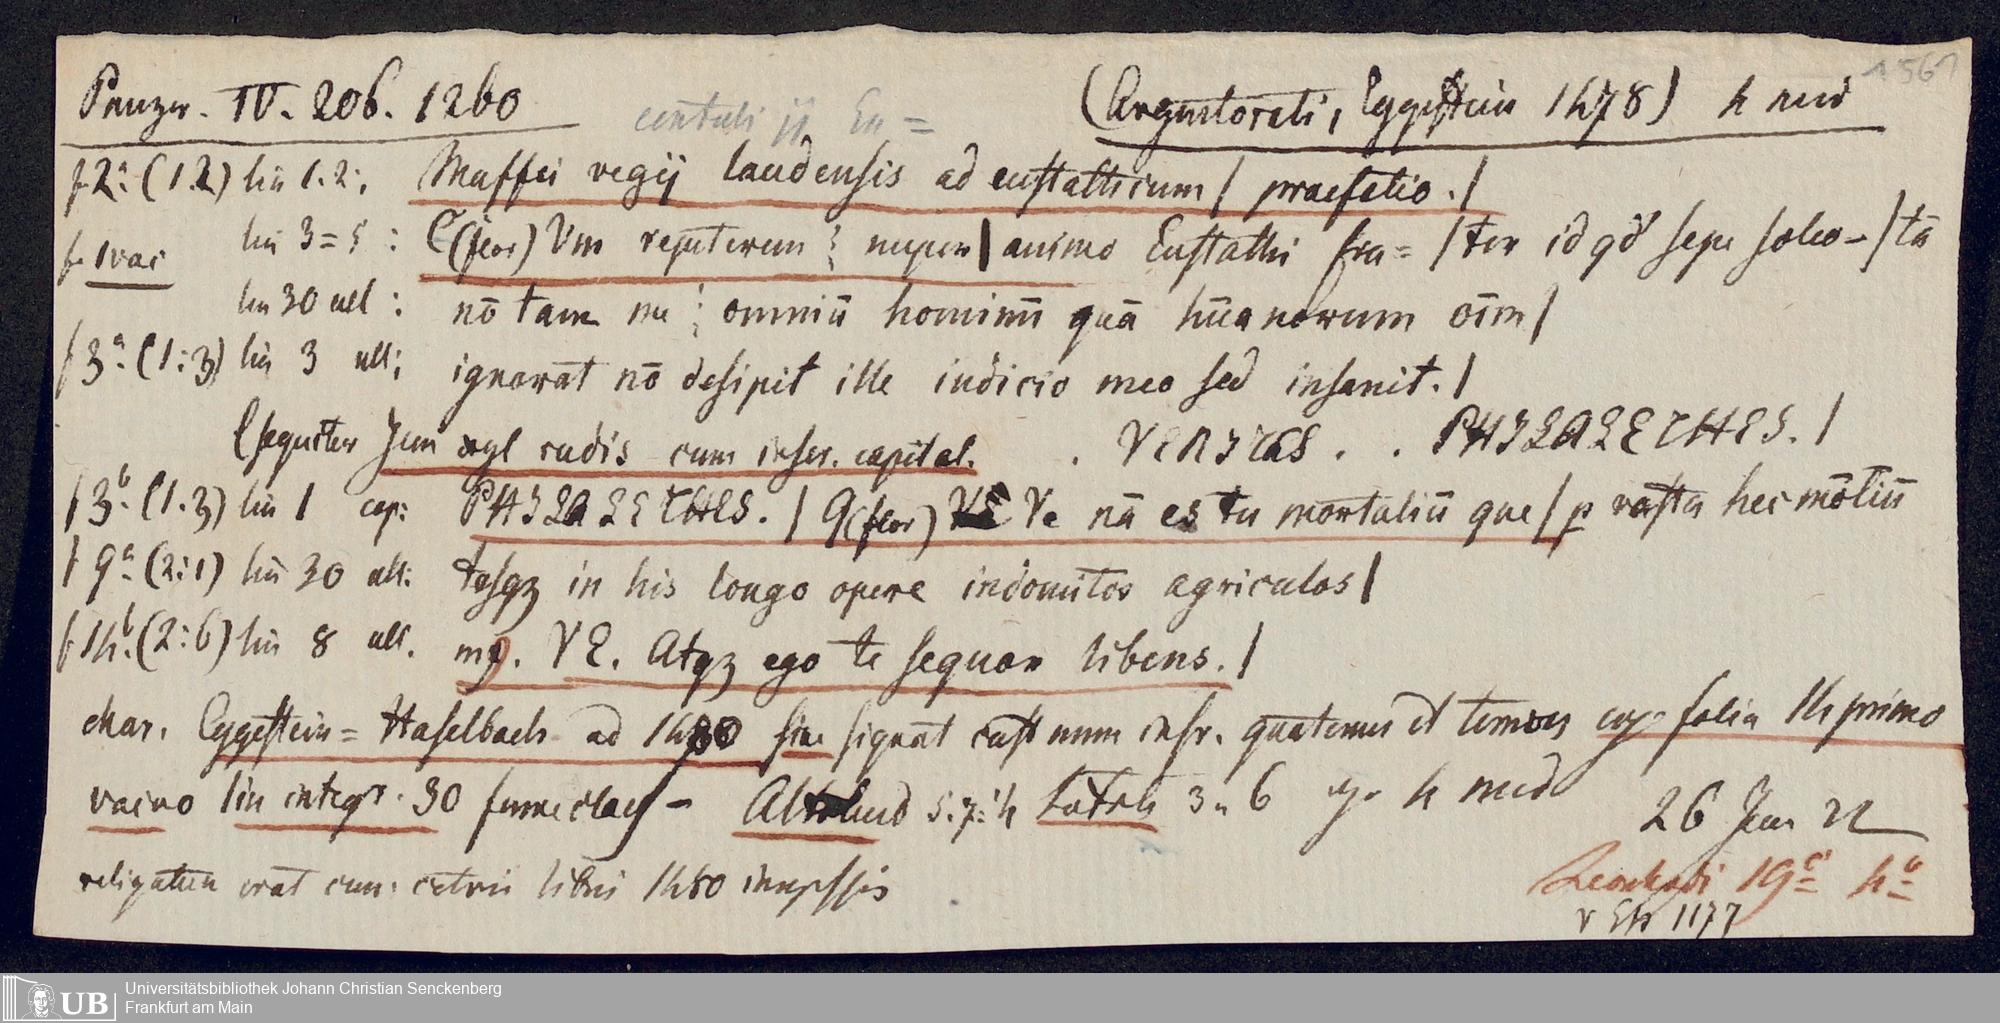 Panzer. IV. 206. 1260 (Argentorati, Eggestein 1478) 4 min
contuli ij Ex =
f 2a. (1.2) lin 1.2: Maffei vegij laudensis ad eustathium / praefatio. /
f. 1 vac lin 3=5 : C(flor) Um reputerem nuper / animo Eustathi fra= / ter id qd sepe soleo- / tā
lin 30 ult : nō tam me : omniū hominū quā hūanorum oīm /
f 3a. (1.3) lin 3 ult: ignorat nō desipit ille iudicio meo sed insanit. /
(sequitur rudis cum inscr. capital. . VERITAS . . PHILALETHES. /
f 3b. (1.3) lin 1 cap: PHILALETHES. / Q(flor) Ve nā es tu mortaliū que / p vasta hec mōtiū
f 9a. (2:1) lin 30 ult: tosqz in his longo opere indomitos agricolas /
f 14b. (2:6) lin 8 ult. VE. Atqz ego te sequor libens. /
char. Eggestein = Haselbach ad 1480 sine signat cust num inscr. quatenus et folia 14 primo
vacuo lin integr. 30 5.7:4 3 u 6 4 26 Jan
religatum erat cum ceteris libris 1480 impssis
19 4
v Ebr 1177
1561
Universitätsbibliothek Johann Christian Senckenberg
Frankfurt am Main
UB